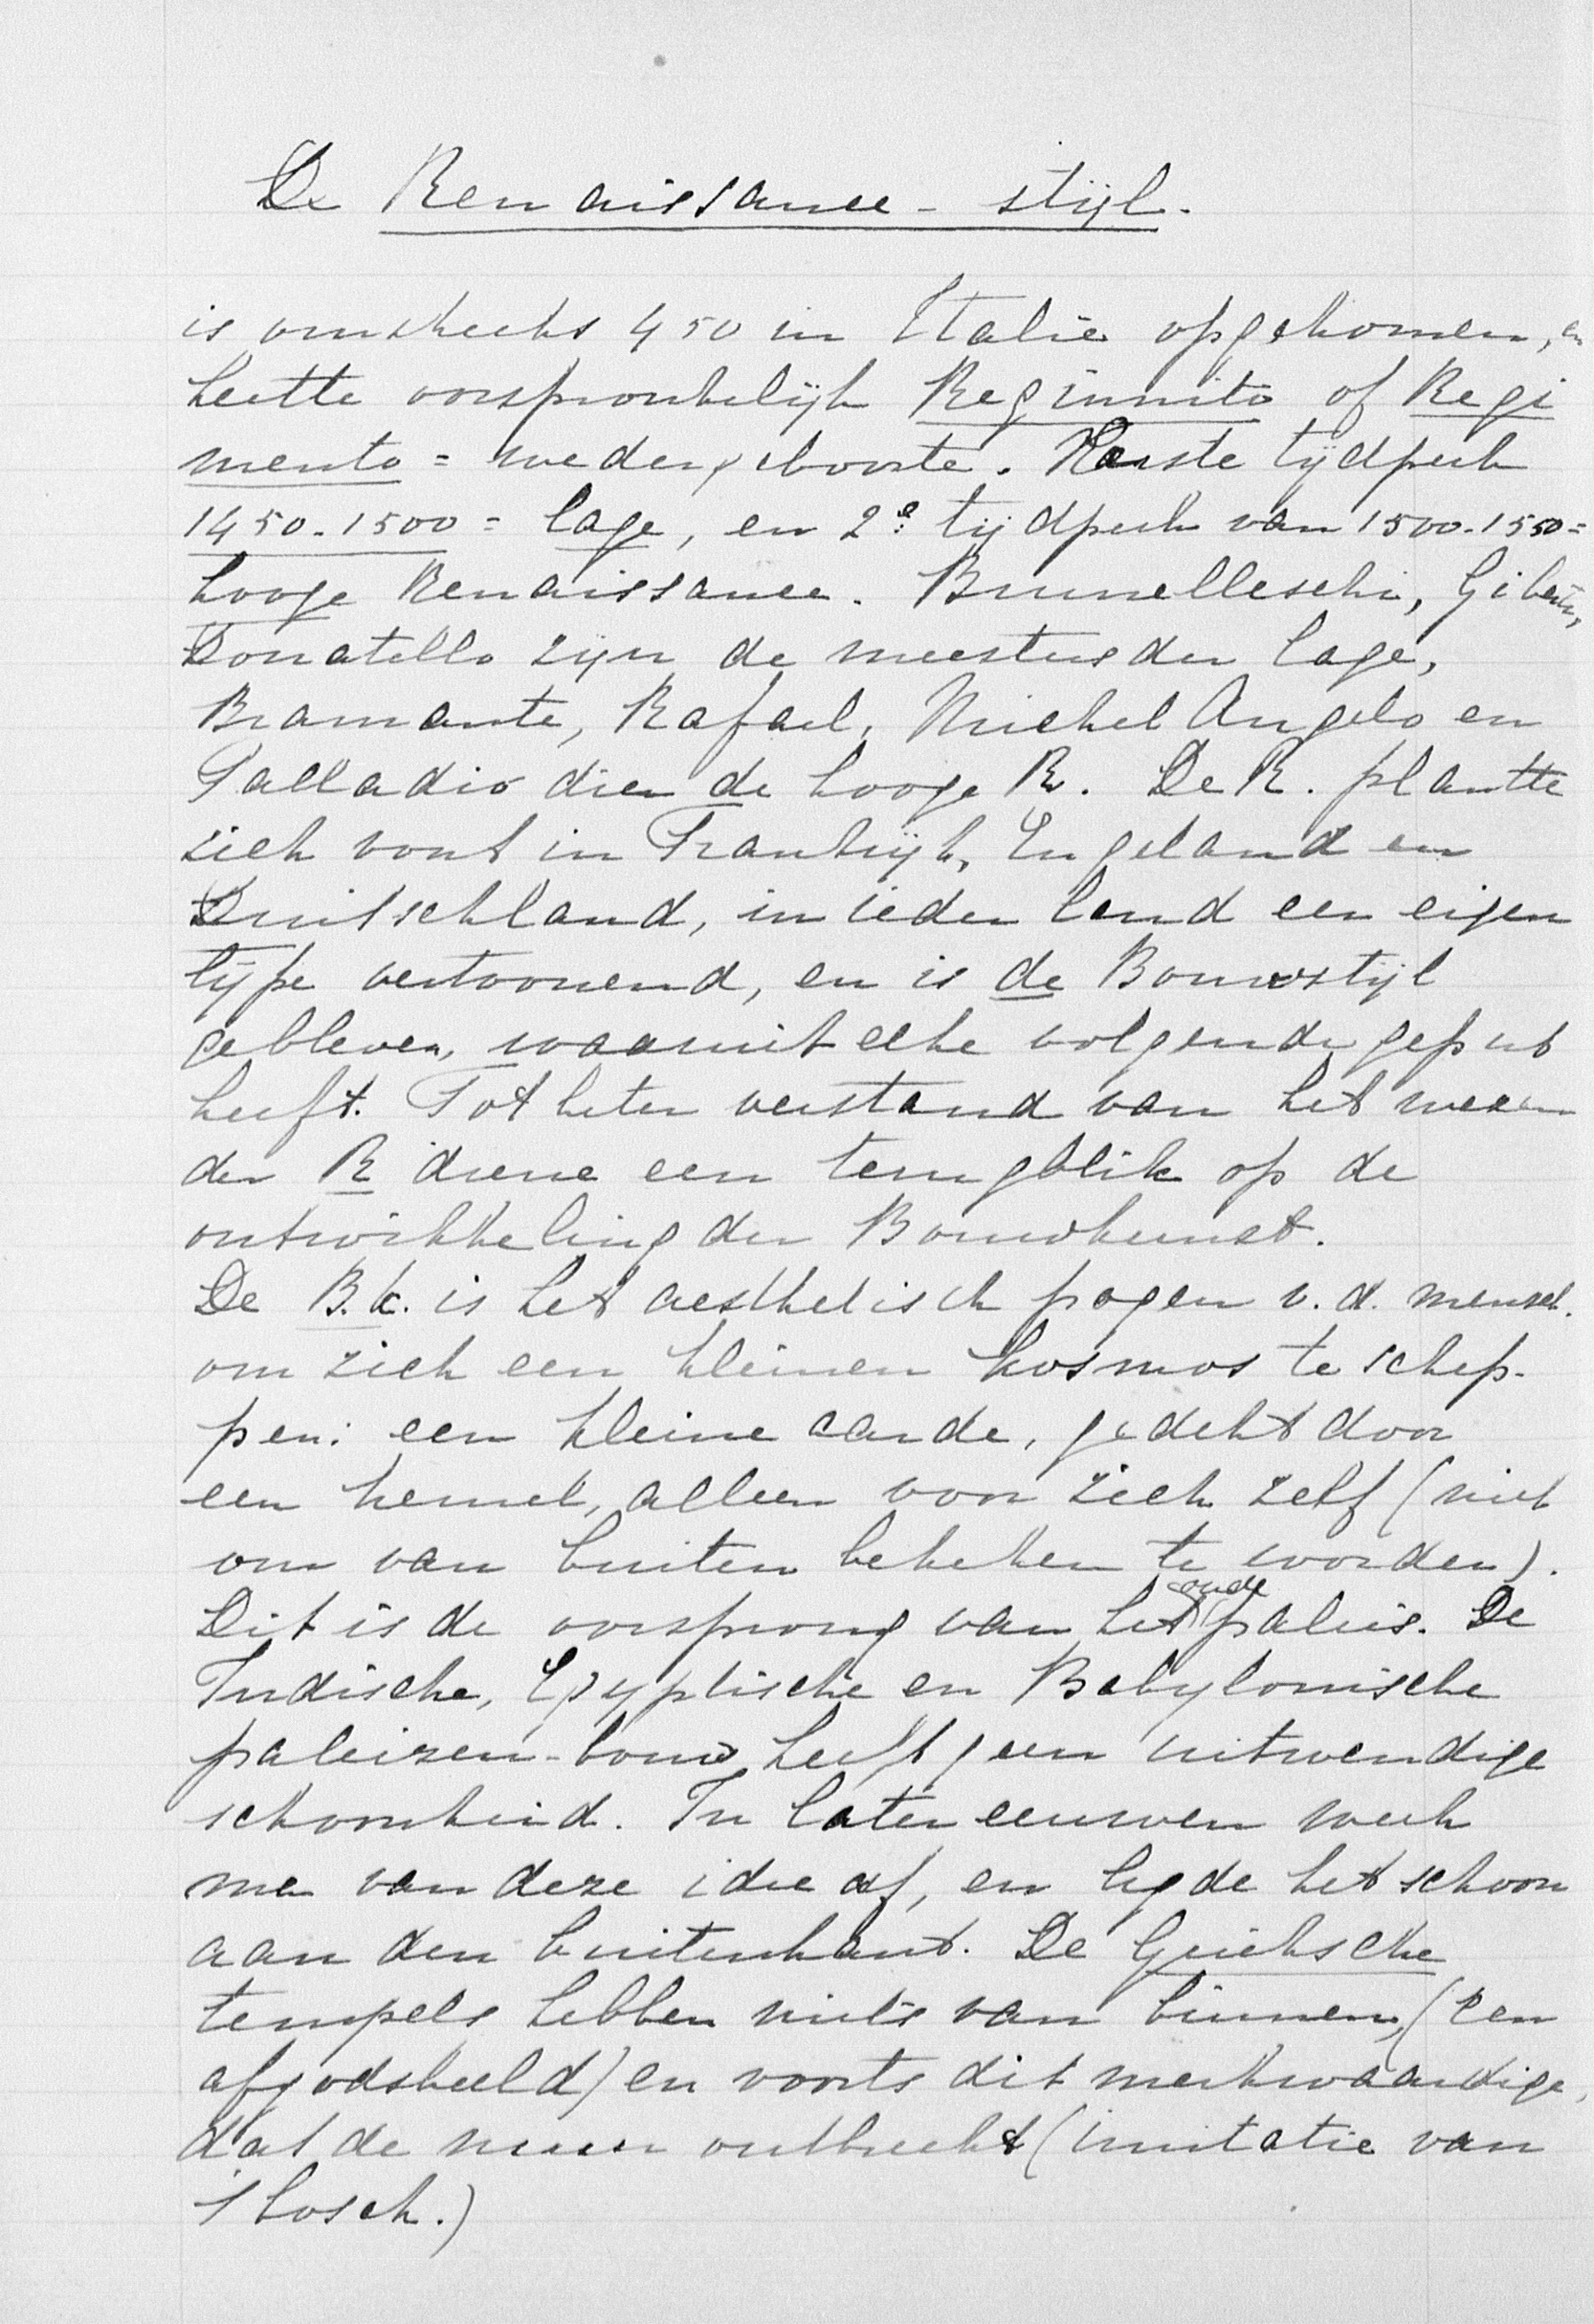 De Renaissance-stijl.
is omstreeks 450 in Italië opgekomen, en
heette oorspronkelijk Reginnito of Regi
mento = wedergeboorte. Eerste tijdperk
1450-1500 = lage, en 2e tijdperk van 1500-1550 =
hooge Renaissance. Brunelleschi, Giberti,
Donatello zijn de meesters der lage,
Bramante, Rafael, Michel Angelo en
Palladio dier de hooge R. De R. plantte
zich voort in Frankrijk, Engeland en
Duitschland, in ieder land een eigen
type vertoonend, en is de Bouwstijl
gebleven, waaruit elke volgende geput
heeft. Tot beter verstand van het wezen
der R diene een terugblik op de
ontwikkeling der Bouwkunst.
De B.k. is het aesthetisch pogen v.d. mensch.
om zich een kleinen kosmos te schep-
pen: een kleine aarde, gedekt door
een hemel, alleen voor zich zelf (niet
om van buiten bekeken te worden).
Dit is de oorsprong van het oude paleis. De
Indische, Egyptische en Babylonische
paleizen-bouw heeft geen uitwendige
schoonheid. In later eeuwen week
men van deze idee af, en legde het schoon
aan den buitenkant. De Grieksche
tempels hebben niets van binnen, (een
afgodsbeeld) en voorts dit merkwaardige,
dat de muur ontbreekt (imitatie van
't bosch.)